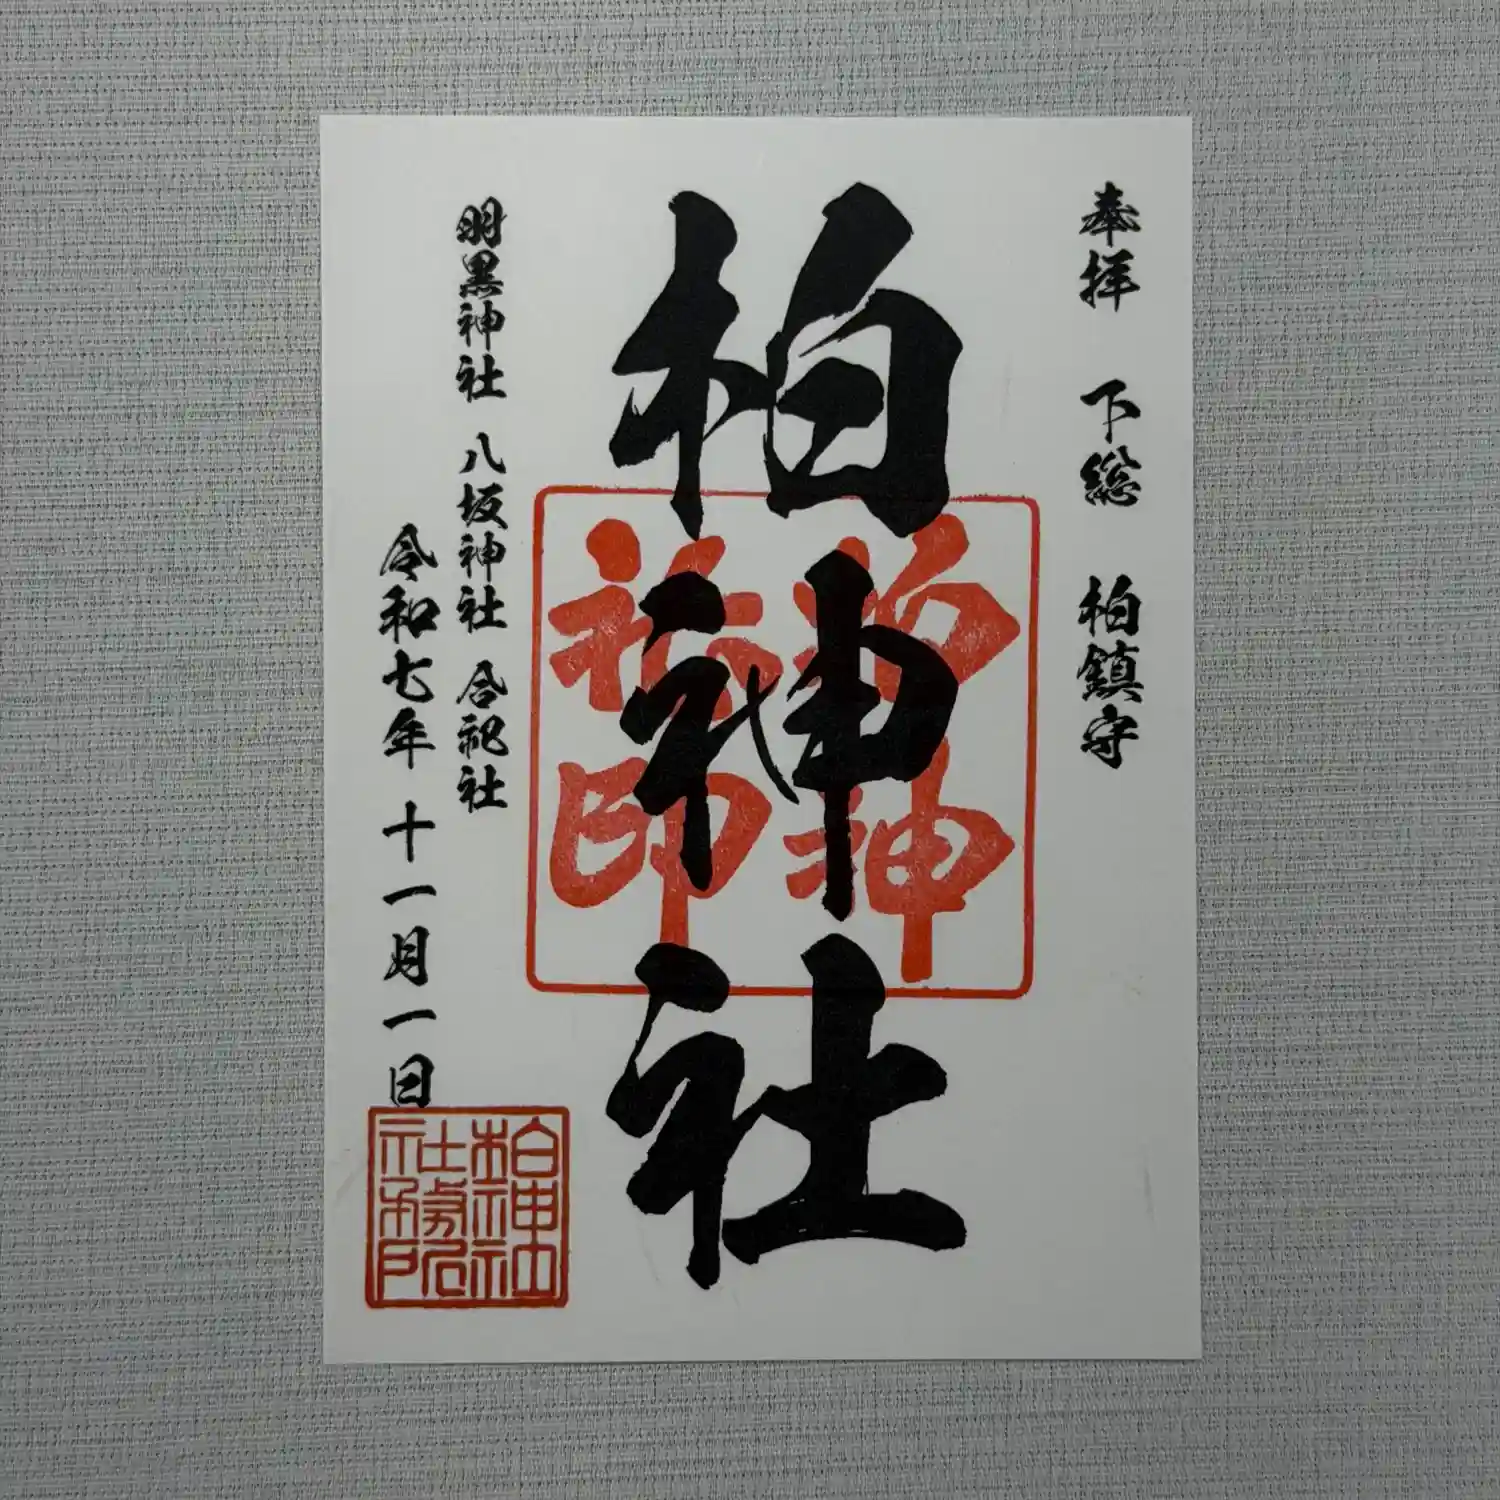 奉拝 下総 柏鎮守
柏神社
羽黒神社 八坂神社 合祀社
令和七年 十一月一日
柏神
社印
柏神社
社務所